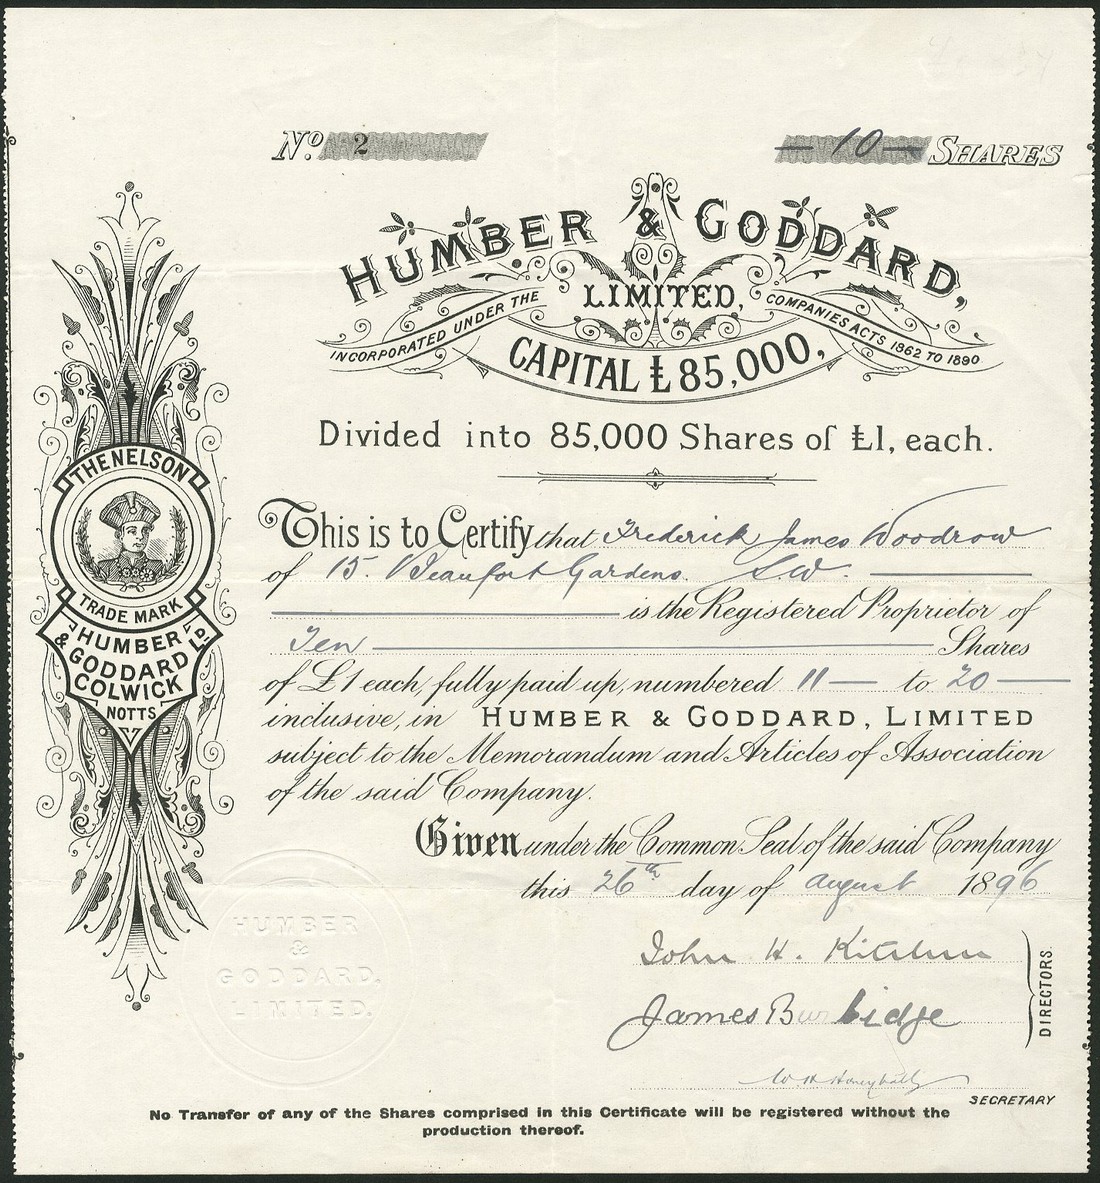 No. 2 — 10 — SHARES
HUMBER & GODDARD,
LIMITED,
INCORPORATED UNDER THE COMPANIES ACTS 1862 TO 1890
CAPITAL £85,000,
Divided into 85,000 Shares of £1, each.
THE NELSON
TRADE MARK
HUMBER
& GODDARD LD
COLWICK
NOTTS
This is to Certify that Frederick James Woodrow
of 15. Beaufort Gardens. S.W.
is the Registered Proprietor of
Ten Shares
of £1 each, fully paid up, numbered 11 — to 20 —
inclusive, in HUMBER & GODDARD, LIMITED
subject to the Memorandum and Articles of Association
of the said Company.
Given under the Common Seal of the said Company
this 26th day of august 1896
HUMBER
&
GODDARD.
LIMITED.
John H.
James Burbidge
DIRECTORS
SECRETARY
No Transfer of any of the Shares comprised in this Certificate will be registered without the
production thereof.